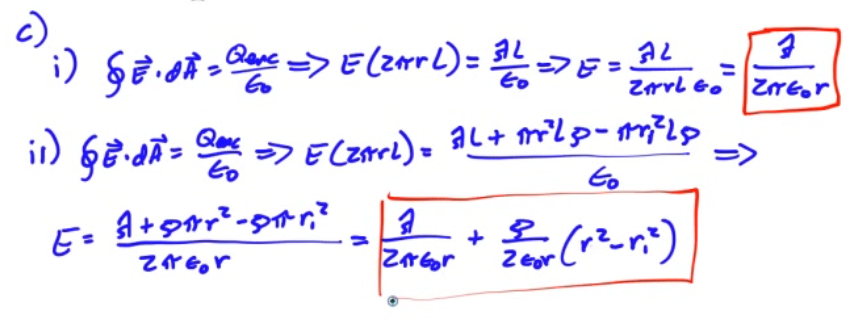 c)
i) ∮E⃗·dA⃗ = Qenc/ε₀ => E(2πrL) = λL/ε₀ => E = λL/2πrLε₀ = λ/2πε₀r
ii) ∮E⃗·dA⃗ = Qenc/ε₀ => E(2πrL) = (λL + πr²Lρ - πr₁²Lρ)/ε₀ =>
E = (λ + ρπr² - ρπr₁²)/2πε₀r = λ/2πε₀r + ρ/2ε₀r (r² - r₁²)